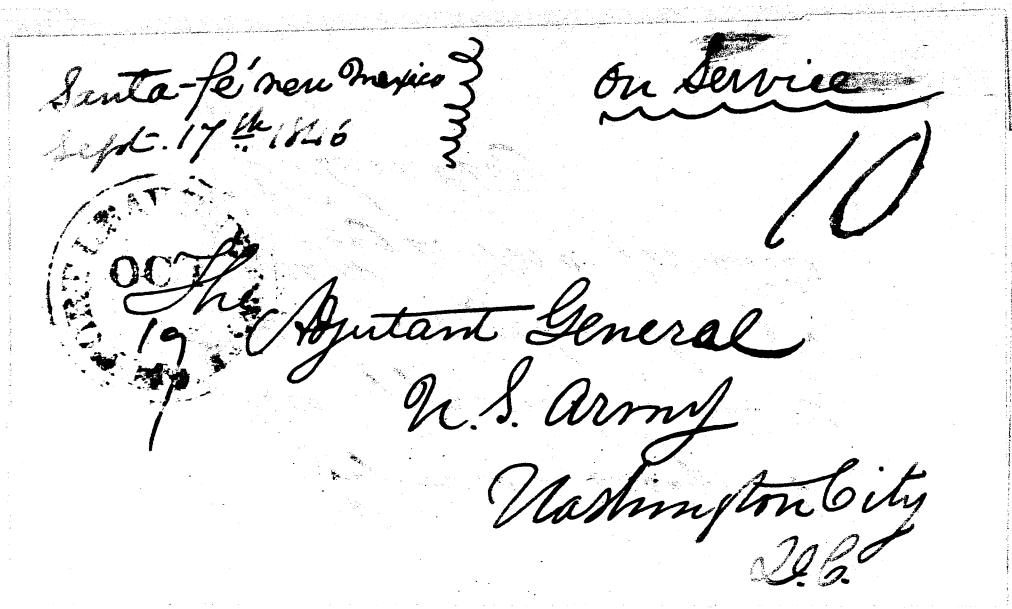 Santa-fé new Mexico
Sept. 17th 1846
On Service
10
OCT
19
The
Adjutant General
U. S. Army
Washington City
D.C.